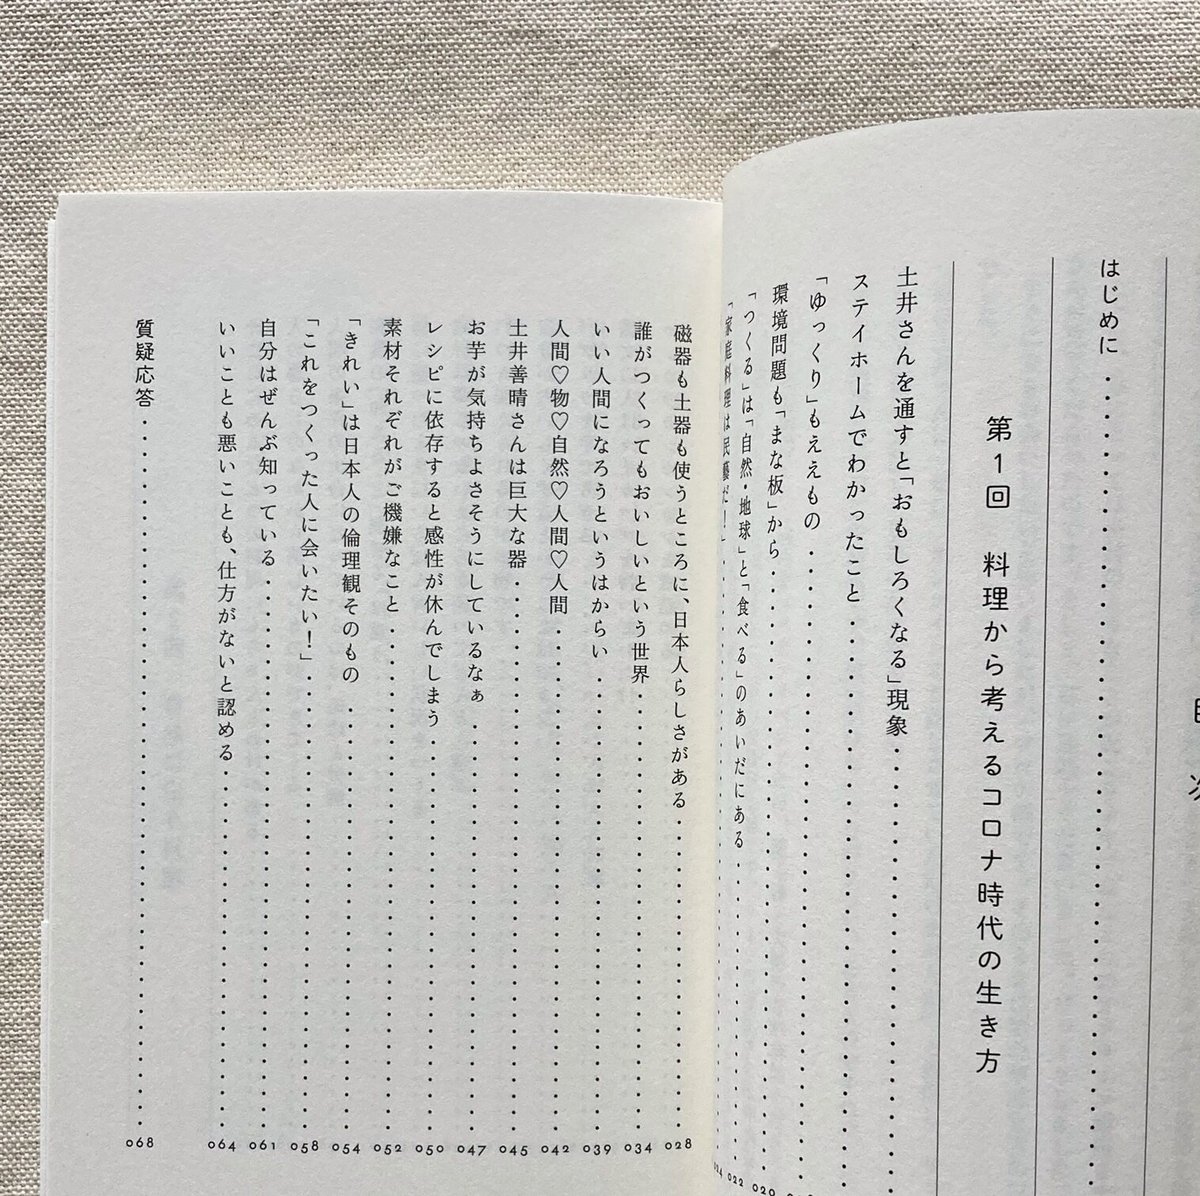 目次
はじめに
第1回 料理から考えるコロナ時代の生き方
土井さんを通すと「おもしろくなる」現象
ステイホームでわかったこと
「ゆっくり」もええもの
環境問題も「まな板」から 020
「つくる」は「自然・地球」と「食べる」のあいだにある 022
「家庭料理は民藝だ!」 024
磁器も土器も使うところに、日本人らしさがある 028
誰がつくってもおいしいという世界 034
いい人間になろうというはからい 039
人間♡物♡自然♡人間♡人間 042
土井善晴さんは巨大な器 045
お芋が気持ちよさそうにしているなぁ 047
レシピに依存すると感性が休んでしまう 050
素材それぞれがご機嫌なこと 052
「きれい」は日本人の倫理観そのもの 054
「これをつくった人に会いたい!」 058
自分はぜんぶ知っている 061
いいことも悪いことも、仕方がないと認める 064
質疑応答 068